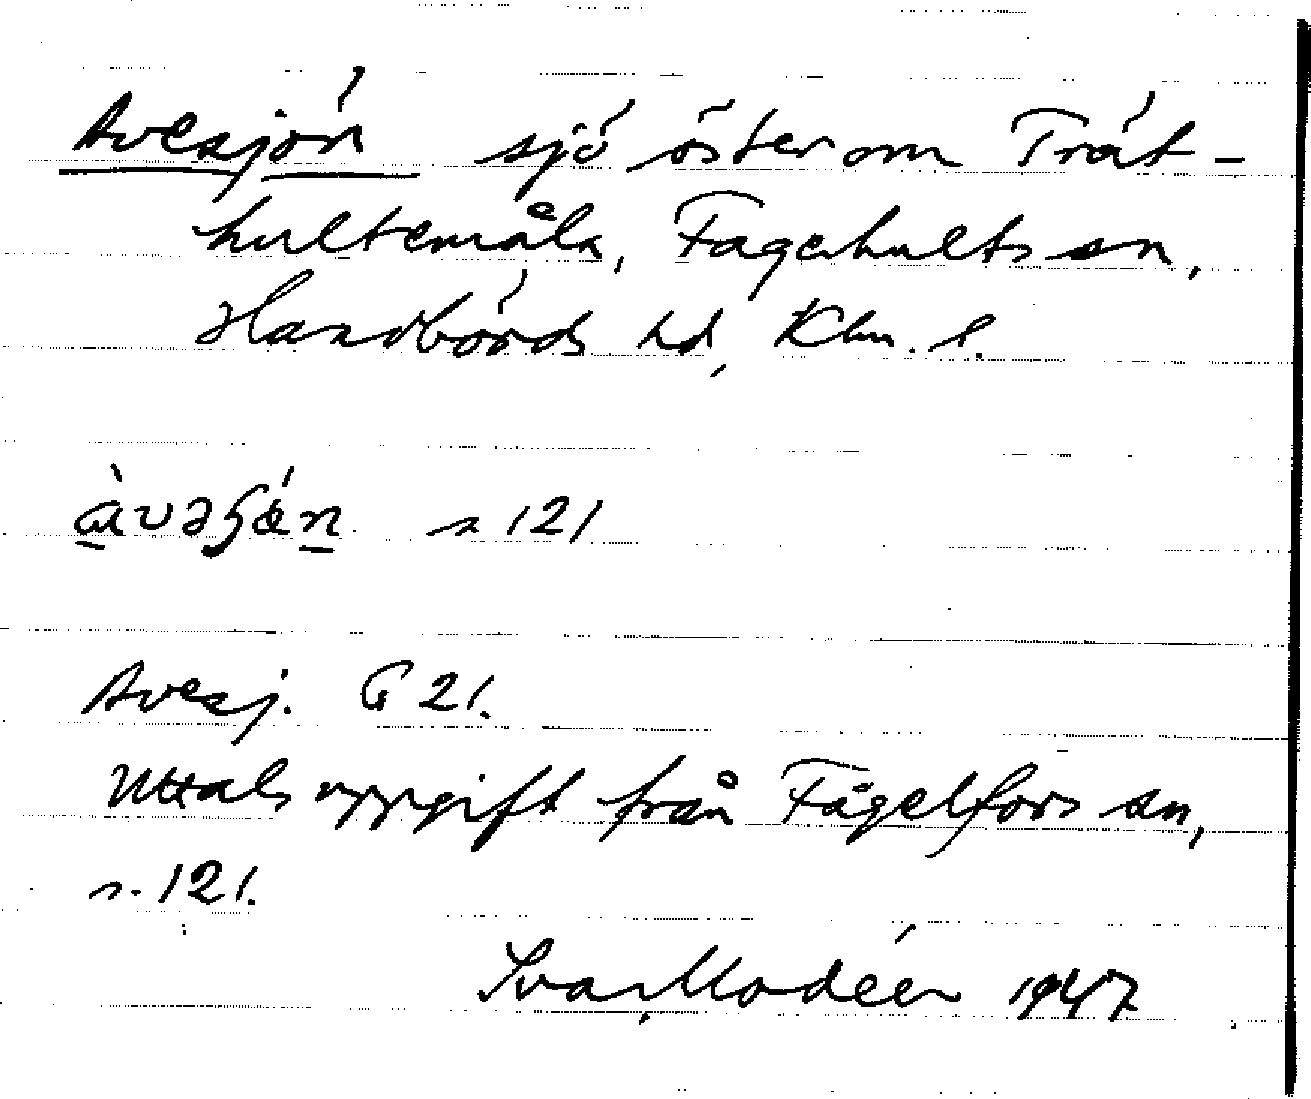 Avesjön sjö öster om Trät-
hultemåla, Fagerhults sn,
Handbörds hd, Klm. l.
àvəʃǿn s 121
Avesj. G 21.
Uttalsuppgift från Fågelfors sn,
s. 121.
Ivar Modéer 1947